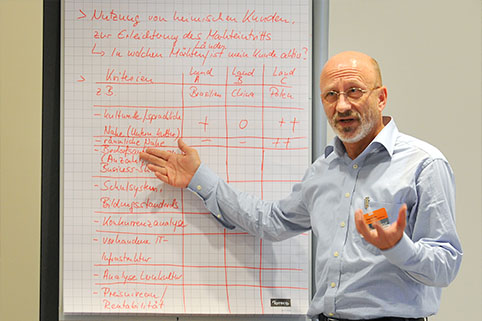 > Nutzung von heimischen Kunden,
zur Erleichterung des Markteintritts
Ländern
↳ In welchen Märkten/ ist mein Kunde aktiv?
> Kriterien Land A Land B Land C
z.B. Brasilien China Polen
- kulturelle/sprachliche + 0 ++
Nähe
- räumliche Nähe - - ++
(Anzahl
Business-
- Schulsystem,
Bildungsstandards
- Konkurrenzanalyse
- vorhandene IT-
Infrastruktur
- Analyse Lernkultur
- Preisniveau/
Rentabilität